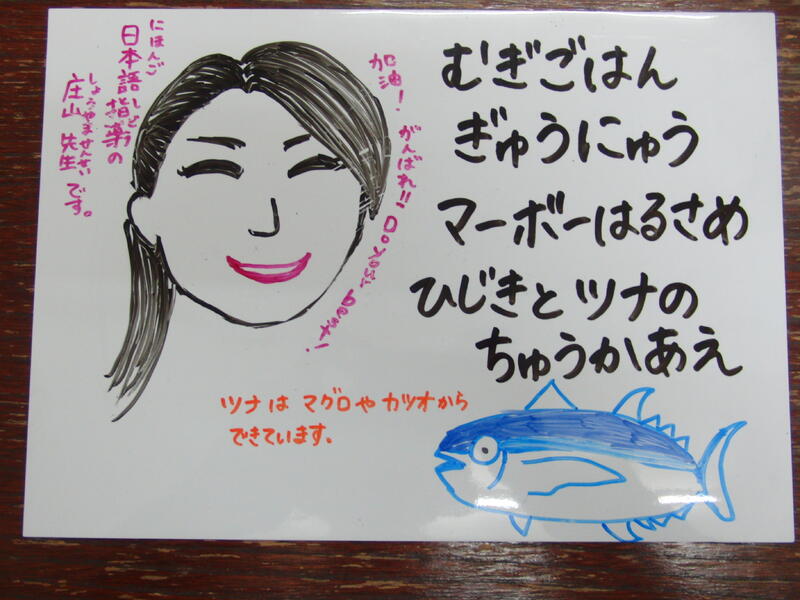 にほんご しどう
日本語指導の
しょうやません​せい
庄山 先生です。
加油! がんばれ!! Do your best!
むぎごはん
ぎゅうにゅう
マーボーはるさめ
ひじきとツナの
ちゅうかあえ
ツナは マグロや カツオから
できています。